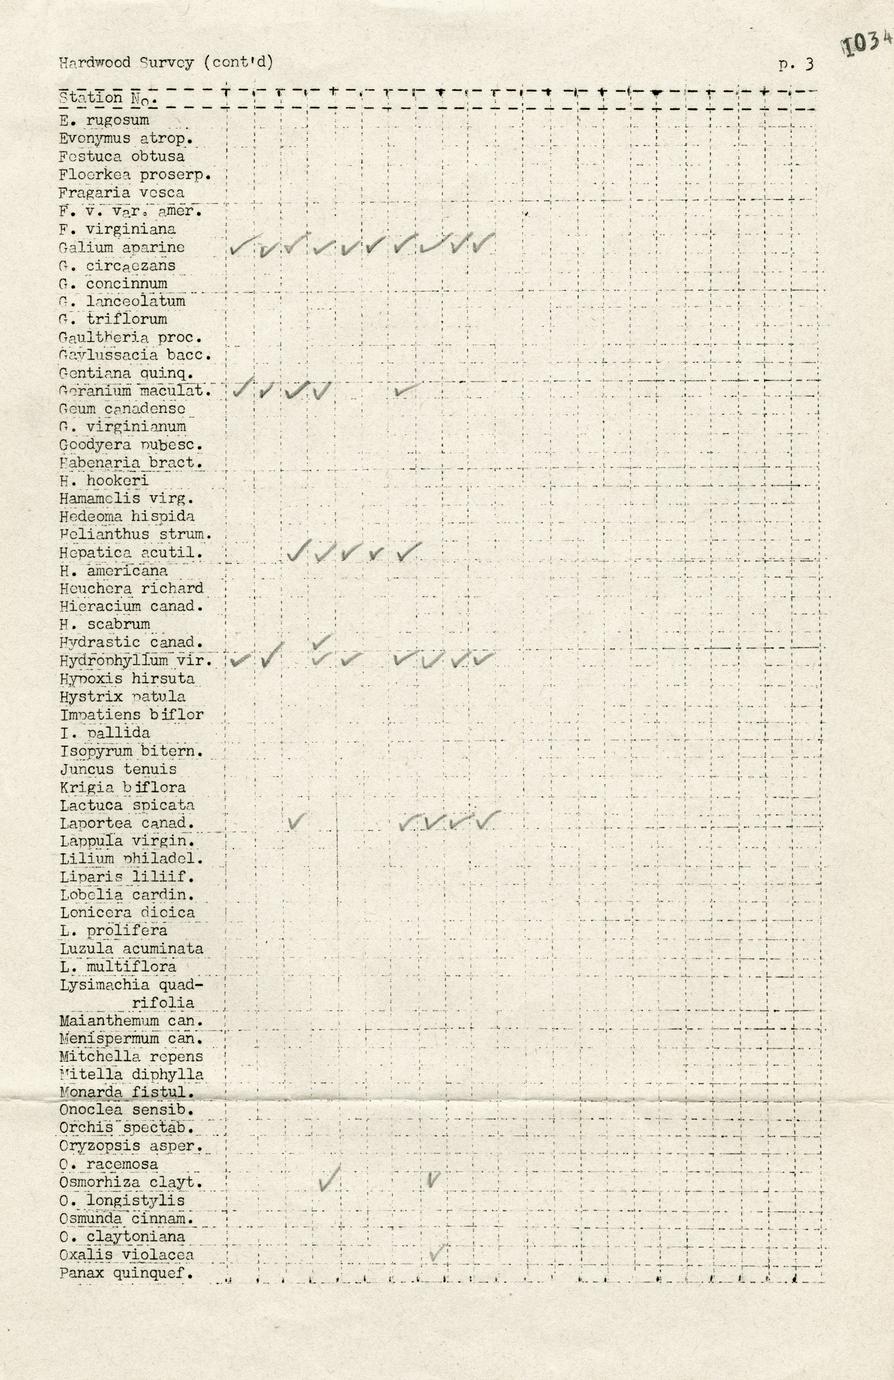 1034
Hardwood Survey (cont'd) p. 3
Station No.
E. rugosum
Evonymus atrop.
Festuca obtusa
Floerkea proserp.
Fragaria vesca
F. v. var. amer.
F. virginiana
Galium aparine ✓ ✓ ✓ ✓ ✓ ✓ ✓ ✓ ✓ ✓
G. circaezans
G. concinnum
G. lanceolatum
G. triflorum
Gaultheria proc.
Gaylussacia bacc.
Gentiana quinq.
Geranium maculat. ✓ ✓ ✓ ✓ ✓
Geum canadense
G. virginianum
Goodyera pubesc.
Habenaria bract.
H. hookeri
Hamamelis virg.
Hedeoma hispida
Helianthus strum.
Hepatica acutil. ✓ ✓ ✓ ✓ ✓
H. americana
Heuchera richard
Hieracium canad.
H. scabrum
Hydrastic canad. ✓
Hydrophyllum vir. ✓ ✓ ✓ ✓ ✓ ✓ ✓ ✓
Hypoxis hirsuta
Hystrix patula
Impatiens biflor
I. pallida
Isopyrum bitern.
Juncus tenuis
Krigia biflora
Lactuca spicata
Laportea canad. ✓ ✓ ✓ ✓ ✓
Lappula virgin.
Lilium philadel.
Liparis liliif.
Lobelia cardin.
Lonicera dioica
L. prolifera
Luzula acuminata
L. multiflora
Lysimachia quad-
rifolia
Maianthemum can.
Menispermum can.
Mitchella repens
Mitella diphylla
Monarda fistul.
Onoclea sensib.
Orchis spectab.
Oryzopsis asper.
O. racemosa
Osmorhiza clayt. ✓ ✓
O. longistylis
Osmunda cinnam.
O. claytoniana
Oxalis violacea ✓
Panax quinquef.